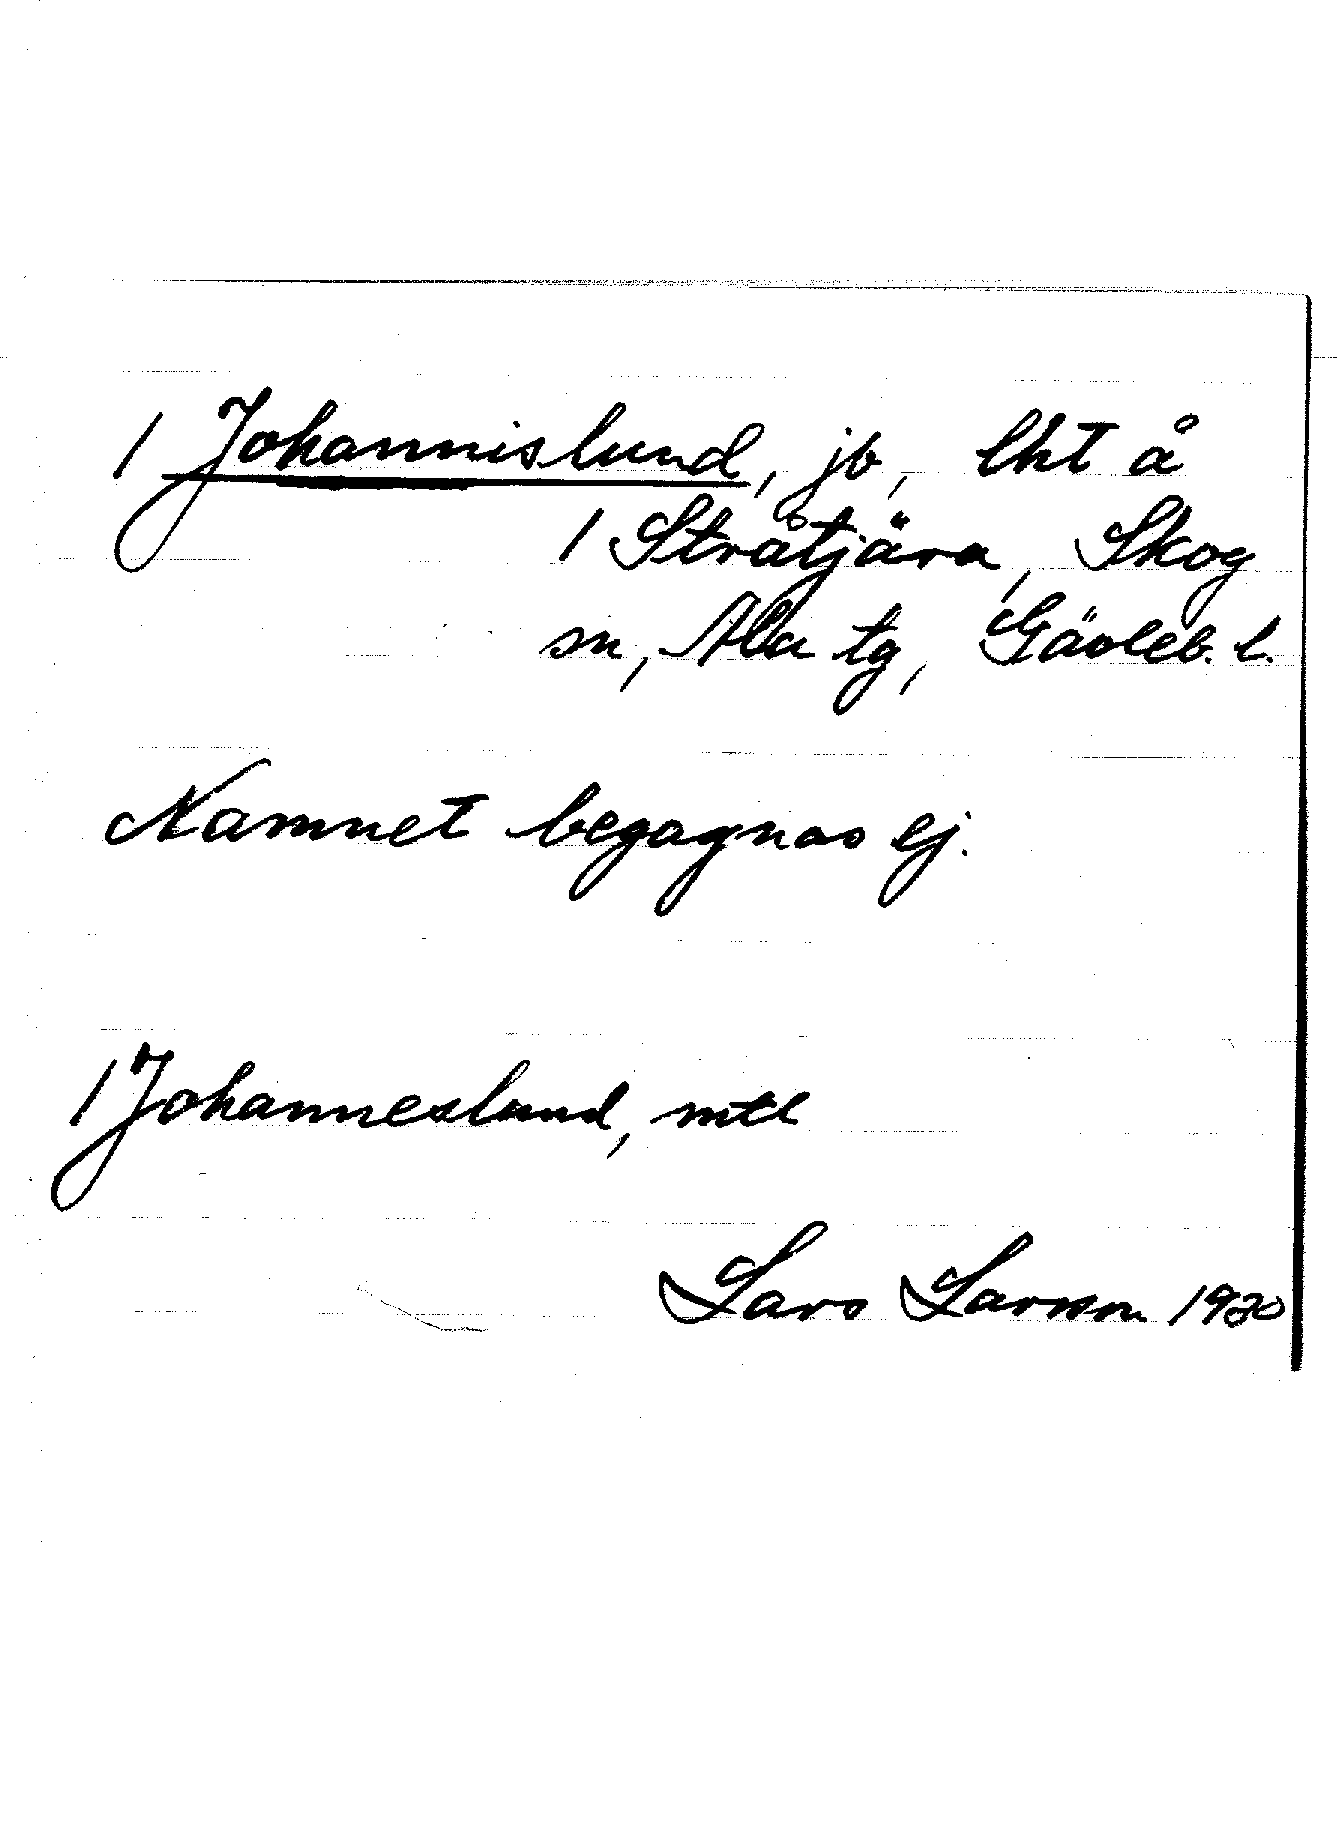 / Johannislund, jb, lht å
/ Stråtjära, Skog
sn, Ala tg, Gävleb. l.
Namnet begagnas ej.
/ Johanneslund, mtl
Lars Larsson 1920